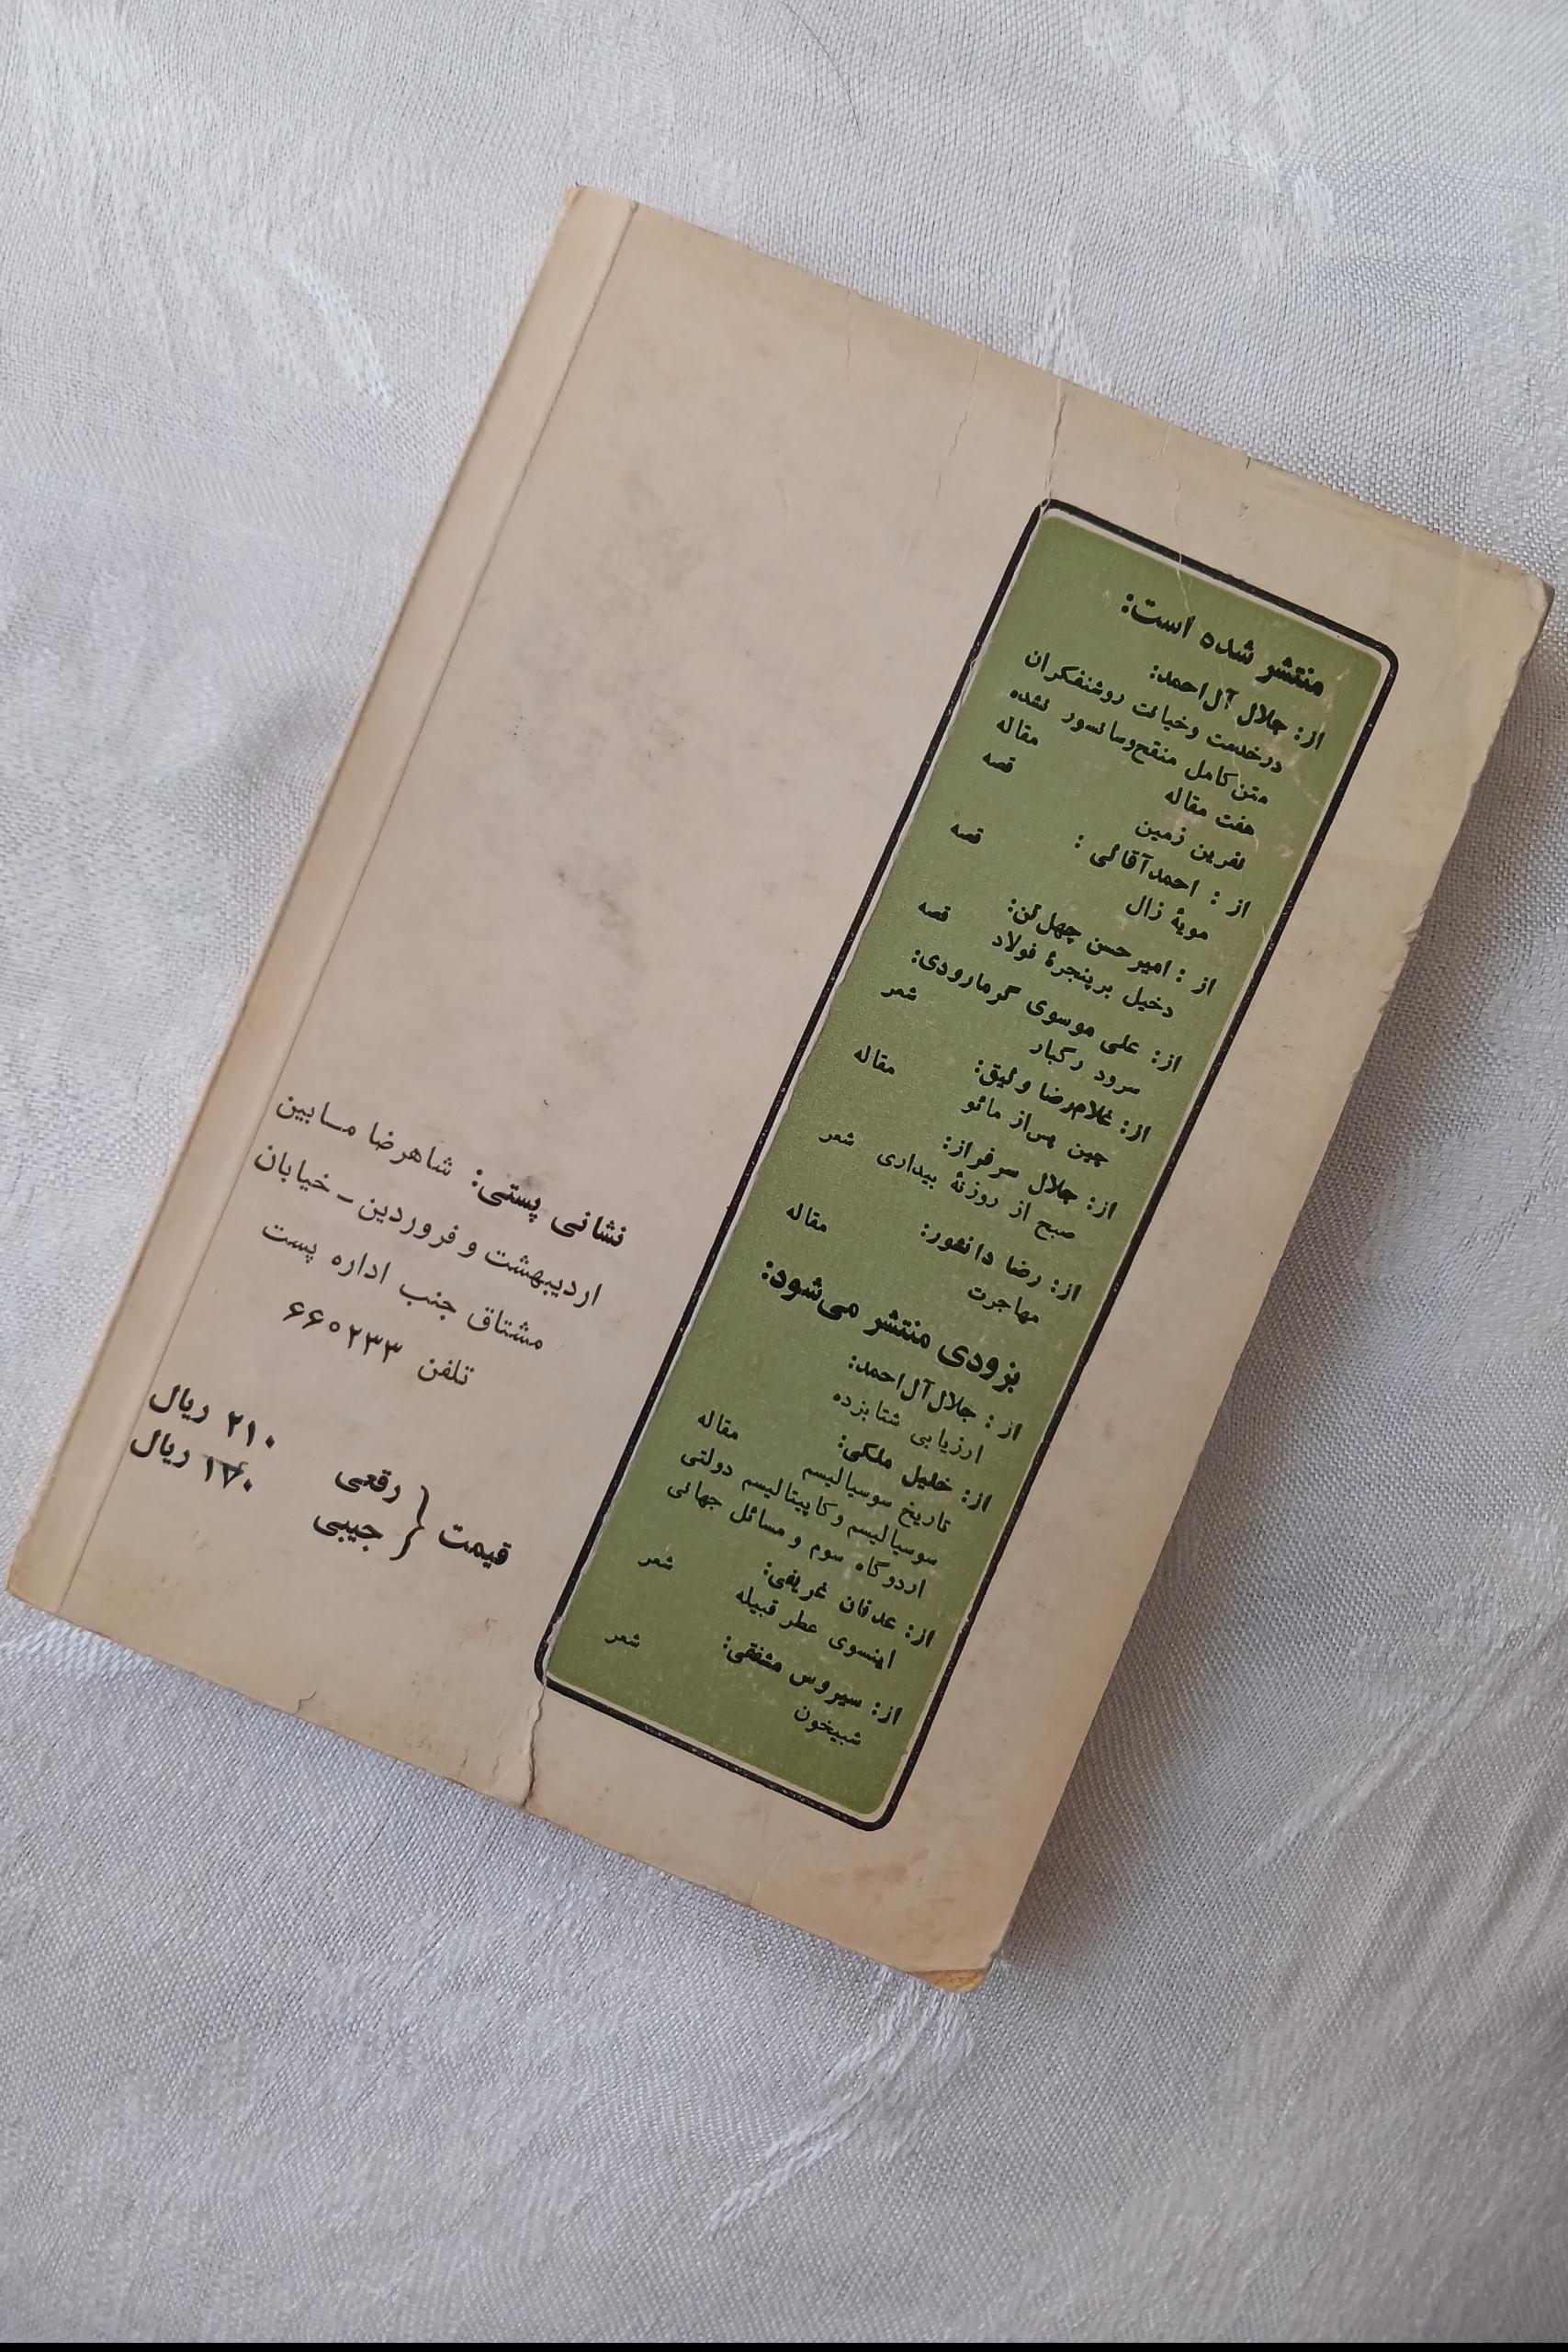 منتشر شده است:
از: جلال آل‌احمد:
درخدمت وخیانت روشنفکران
متن‌کامل منقح‌وسانسور نشده
هفت مقاله مقاله
نفرین زمین قصه
از : احمدآقائی :
مویهٔ زال قصه
از : امیرحسن چهل‌تن:
دخیل برپنجرهٔ فولاد قصه
از: علی موسوی گرمارودی:
سرود رگبار شعر
از: غلامرضا وثیق:
چین پس‌از مائو مقاله
از: جلال سرفراز:
صبح از روزنهٔ بیداری شعر
از: رضا دانشور:
مهاجرت مقاله
بزودی منتشر می‌شود:
از : جلال‌آل‌احمد:
ارزیابی شتابزده
از: خلیل ملکی: مقاله
تاریخ سوسیالیسم
سوسیالیسم وکاپیتالیسم دولتی
اردوگاه سوم و مسائل جهانی
از: عدنان غریفی:
اینسوی عطر قبیله شعر
از: سیروس مشفقی:
شبیخون شعر
نشانی پستی: شاهرضا مسابین
اردیبهشت و فروردین-خیابان
مشتاق جنب اداره پست
تلفن ۶۶۰۲۳۳
قیمت
رقعی ۲۱۰ ریال
جیبی ۱۷۰ ریال